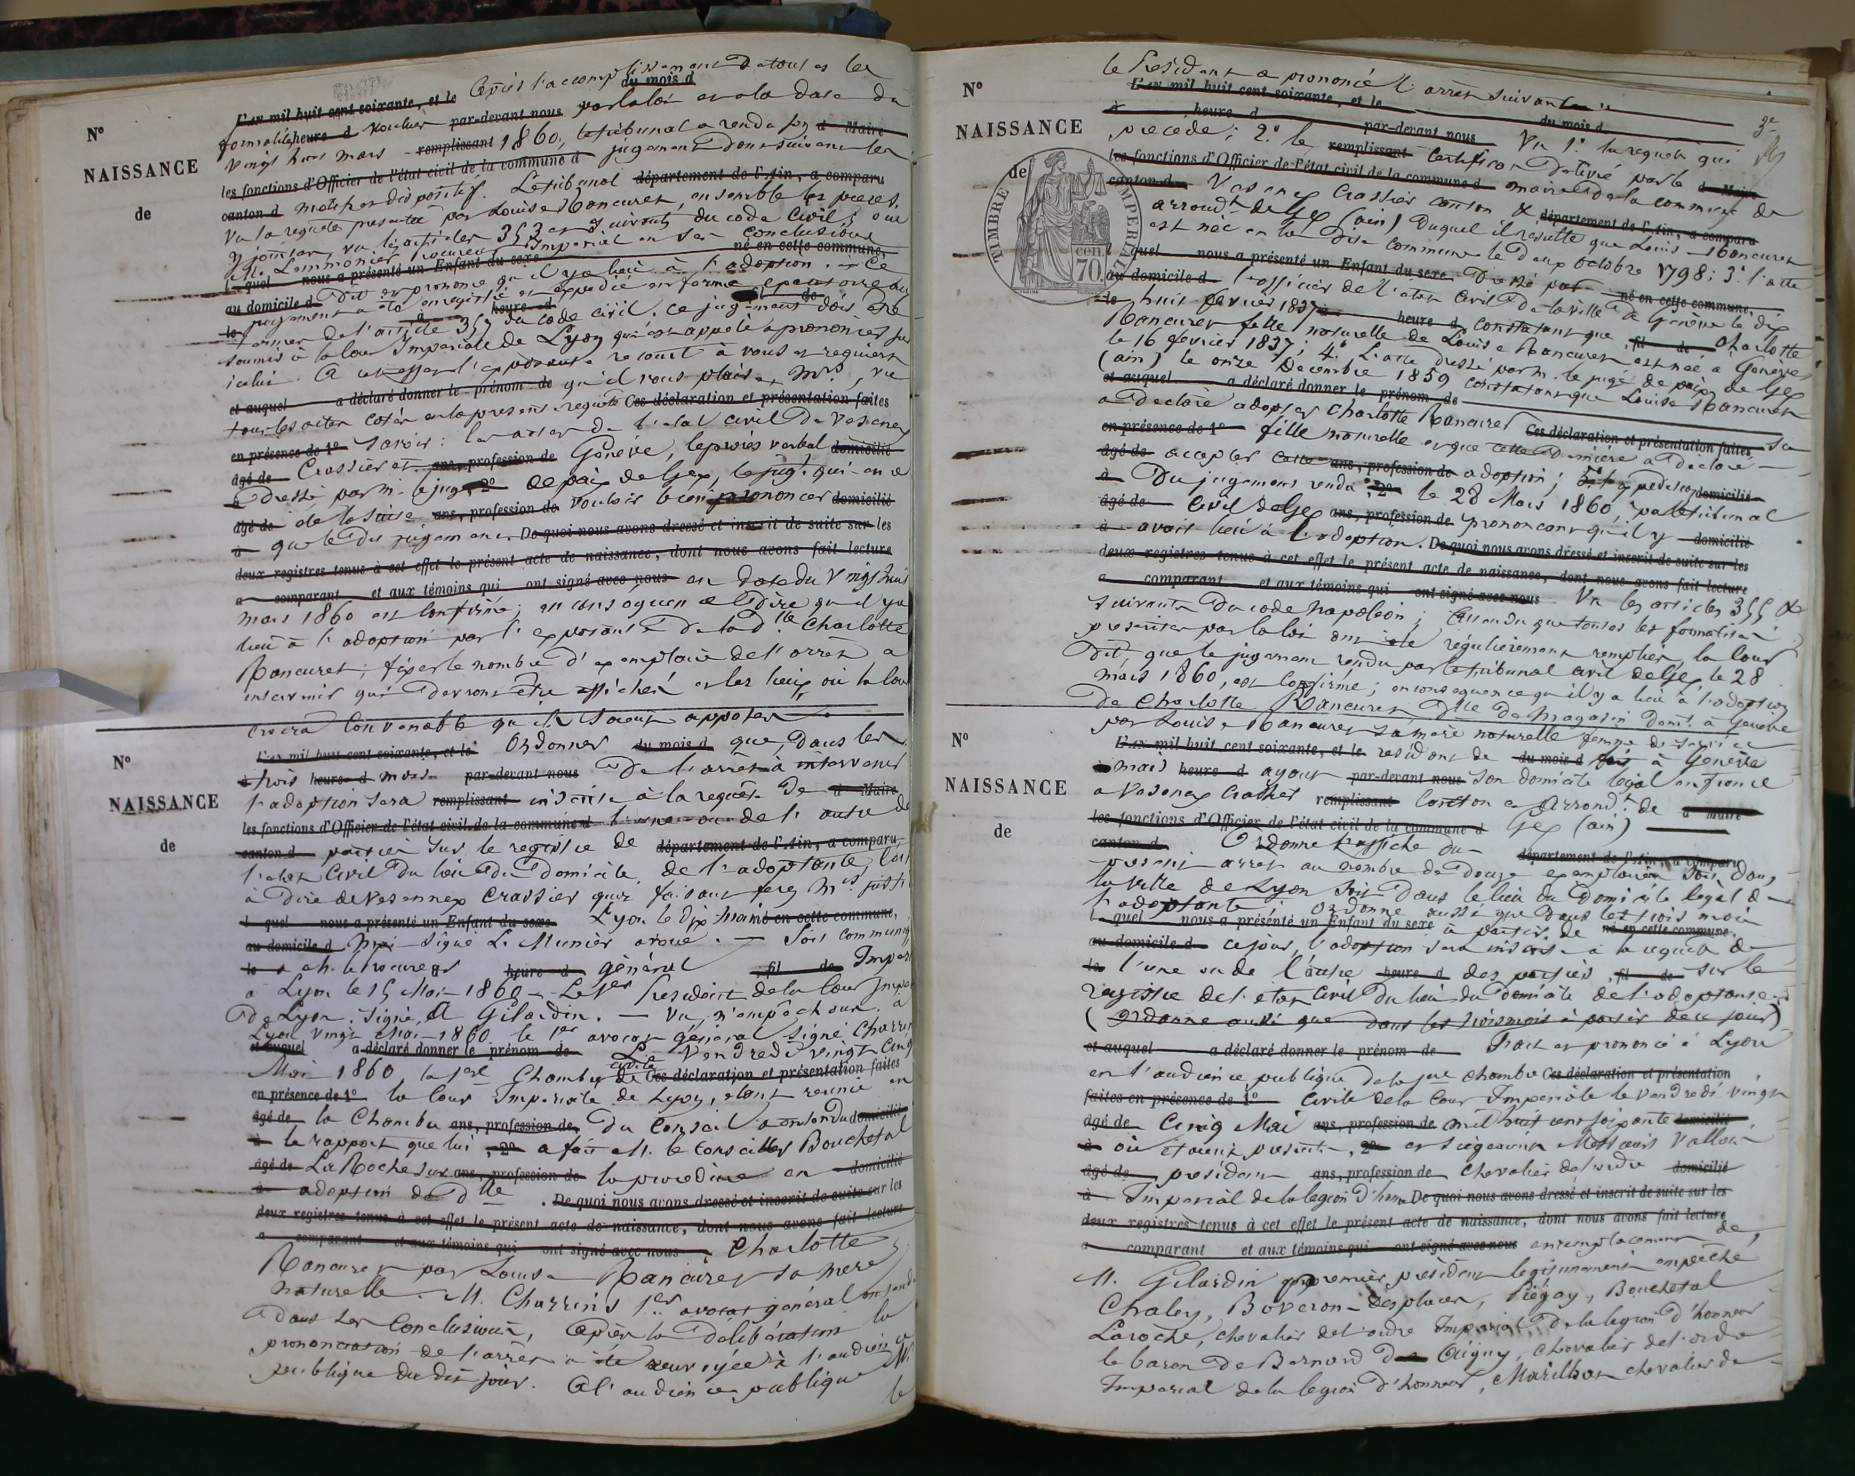 Après l'accomplissement de toutes les
L'an mil huit cent soixante, et le du mois d
formalités heure d voulues par-devant nous par la loi et à la date du
vingt huit mars remplissant 1860, le tribunal a rendu son d Maire
les fonctions d'Officier de l'état civil de la commune d jugement dont suivent les
canton d motifs et dispositif. Le tribunal département de l'Ain, a comparu
Vu la requête présentée par Louise Rancurer, ensemble les pièces
y jointes, vu les articles 353 et suivants du code Civil; oui
M. Lemmonier Procureur Impérial en ses conclusions
l quel nous a présenté un Enfant du sexe né en cette commune,
au domicile d Dit et prononce qu'il y a lieu à l'adoption. Ce
le jugement a été enregistré et expédié en forme
à heure d fil de
termes de l'article 357 du code civil. Ce jugement doit être
soumis à la Cour Impériale de Lyon qui est appelée à prononcer sur
icelui. A cet effet l'exposante recourt à vous et requiert
et auquel a déclaré donner le prénom de qu'il vous plaise, Mrs, vu
tous les actes cotés en la présente requête Ces déclaration et présentation faites
en présence de 1° savoir: les actes de l'état civil de Vesenex
âgé de Crassier et ans, profession de Genève, le procès verbal domicilié
à Dressé par M. le juge 2° de paix de Gex, le jugt. qui en a
âgé de été la suite, ans, profession de vouloir bien prononcer domicilié
à que le dit jugement. De quoi nous avons dressé et inscrit de suite sur les
deux registres tenus à cet effet le présent acte de naissance, dont nous avons fait lecture
a comparant et aux témoins qui ont signé avec nous en date du vingt huit
mars 1860 est confirmé; en conséquence dire qu'il y a
lieu à l'adoption par l'exposante de la dlle Charlotte
Rancurer; fixer le nombre d'exemplaire de l'arrêt à
intervenir qui devront être affichés et les lieux où la Cour
croira convenable qu'ils soient apposés
N° NAISSANCE de
L'an mil huit cent soixante, et le Ordonner du mois d que, dans les
à trois heure d mois par-devant nous de l'arrêt à intervenir
l'adoption sera remplissant inscrite à la requête de d Maire
les fonctions d'Officier de l'état civil de la commune d l'une ou de l'autre des
canton d parties sur le registre de département de l'Ain, a comparu
l'état Civil du lieu du domicile de l'adoptante, c'est
à dire de Vesennex Crassier quoi faisant ferez Mrs justice
l quel nous a présenté un Enfant du sexe Lyon le dix mai né en cette commune,
au domicile d Signé L. Munier avoué. — Soit communiqué
le à M. le Procureur heure d général fil de Impérial
à Lyon le 15 Mai 1860 — Le 1er Président de la Cour Impériale
de Lyon. Signé, Gilardin. — Vu, n'empêchons. à
Lyon vingt Mai 1860. le 1er avocat général signé Charrins
et auquel a déclaré donner le prénom de Le Vendredi vingt cinq
Mai 1860 la 1ere Chambre civile de Ces déclaration et présentation faites
en présence de 1° la Cour Impériale de Lyon, étant réunie en
âgé de la Chambre ans, profession de du Conseil a entendu domicilié
à le rapport que lui 2° a fait M. le Conseiller Bouchetal
âgé de LaRoche sur ans, profession de la procédure en domicilié
à adoption de Dlle De quoi nous avons dressé et inscrit de suite sur les
deux registres tenus à cet effet le présent acte de naissance, dont nous avons fait lecture
a comparant et aux témoins qui ont signé avec nous. Charlotte
Rancurer par Louise Rancurer sa mère
naturelle. M. Charrins 1er avocat général entendu
dans ses Conclusions, Après la délibération la
prononciation de l'arrêt a été renvoyée à l'audience
publique du dit jour. A l'audience publique M.
le
N° NAISSANCE de
le Président a prononcé l'arrêt suivant
L'an mil huit cent soixante, et le du mois d
à heure d par-devant nous Vu 1° la requête qui
précède; 2° le remplissant Certificat délivré par le d Maire
les fonctions d'Officier de l'état civil de la commune d maire de la commune de
canton d Vesenex Crassier canton & département de l'Ain, a comparu
arrondt de Gex (ain) duquel il résulte que Louise Rancurer
est née en la dite commune le deux octobre 1798; 3° l'acte
l quel nous a présenté un Enfant du sexe Dressé par né en cette commune,
au domicile d l'officier de l'état Civil de la ville de Genève le dix
le huit février 1837 heure d constatant que fil de Charlotte
Rancurer fille naturelle de Louise Rancurer est née à Genève
le 16 février 1837; 4° l'acte dressé par M. le juge de paix de Gex
(ain) le onze Décembre 1859 constatant que Louise Rancurer
et auquel a déclaré donner le prénom de
a déclaré adopter Charlotte Rancurer Ces déclaration et présentation faites sa
en présence de 1° fille naturelle et que cette dernière a déclaré
âgé de accepter cette ans, profession de adoption; 5° l'expédition domicilié
à Du jugement rendu 2° le 28 Mars 1860, par le tribunal
âgé de Civil de Gex ans, profession de prononçant qu'il y domicilié
à avait lieu à l'adoption. De quoi nous avons dressé et inscrit de suite sur les
deux registres tenus à cet effet le présent acte de naissance, dont nous avons fait lecture
a comparant et aux témoins qui ont signé avec nous Vu les articles 355 &
suivants du code Napoléon; Attendu que toutes les formalités
prescrites par la loi ont été régulièrement remplies, la Cour
Dit que le jugement rendu par le tribunal civil de Gex, le 28
mars 1860, est Confirmé; en conséquence qu'il y a lieu à l'adoption
de Charlotte Rancurer Dlle de Magasin domt. à Genève
par Louise Rancurer sa mère naturelle femme de
N° NAISSANCE de
L'an mil huit cent soixante, et le résidant de du mois d fait à Genève
à mais heure d ayant par-devant nous son domicile légal en France
à Vesenex Crassier remplissant Canton & Arrondt de d Maire
les fonctions d'Officier de l'état civil de la commune d Gex (ain)
canton d Ordonne l'affiche du département de l'Ain, a comparu
présent arrêt au nombre de Douze exemplaires soit dans
la ville de Lyon soit dans le lieu du domicile légal de
l'adoptante; ordonne aussi que dans les trois mois
l quel nous a présenté un Enfant du sexe à partir de né en cette commune,
au domicile d ce jour, l'adoption sera inscrite à la requête de
le l'une ou de l'autre heure d des parties fil de sur le
registre de l'état Civil du lieu du domicile de l'adoptante
(ordonne aussi que dans les trois mois à partir de ce jour)
et auquel a déclaré donner le prénom de Fait et prononcé à Lyon
en l'audience publique de la 1ere chambre Ces déclaration et présentation
faites en présence de 1° Civile de la Cour Impériale le vendredi vingt
âgé de Cinq Mai ans, profession de mil huit cent soixante domicilié
à où étaient présents, 2° et siégeaient Messieurs Valloi
âgé de président ans, profession de chevalier de l'ordre domicilié
à Impérial de la légion d'honr De quoi nous avons dressé et inscrit de suite sur les
deux registres tenus à cet effet le présent acte de naissance, dont nous avons fait lecture
a comparant et aux témoins qui ont signé avec nous en remplacement de,
M. Gilardin premier président légitimement empêché
Chaley, Boveron-Desplaces, Piégay, Bouchetal
Laroche, chevalier de l'ordre Impérial de la légion d'honneur
le baron de Bernard De Quigny, chevalier de l'ordre
Impérial de la légion d'honneur, Marilhat chevalier de
N° NAISSANCE de
TIMBRE IMPERIAL
70 cen.